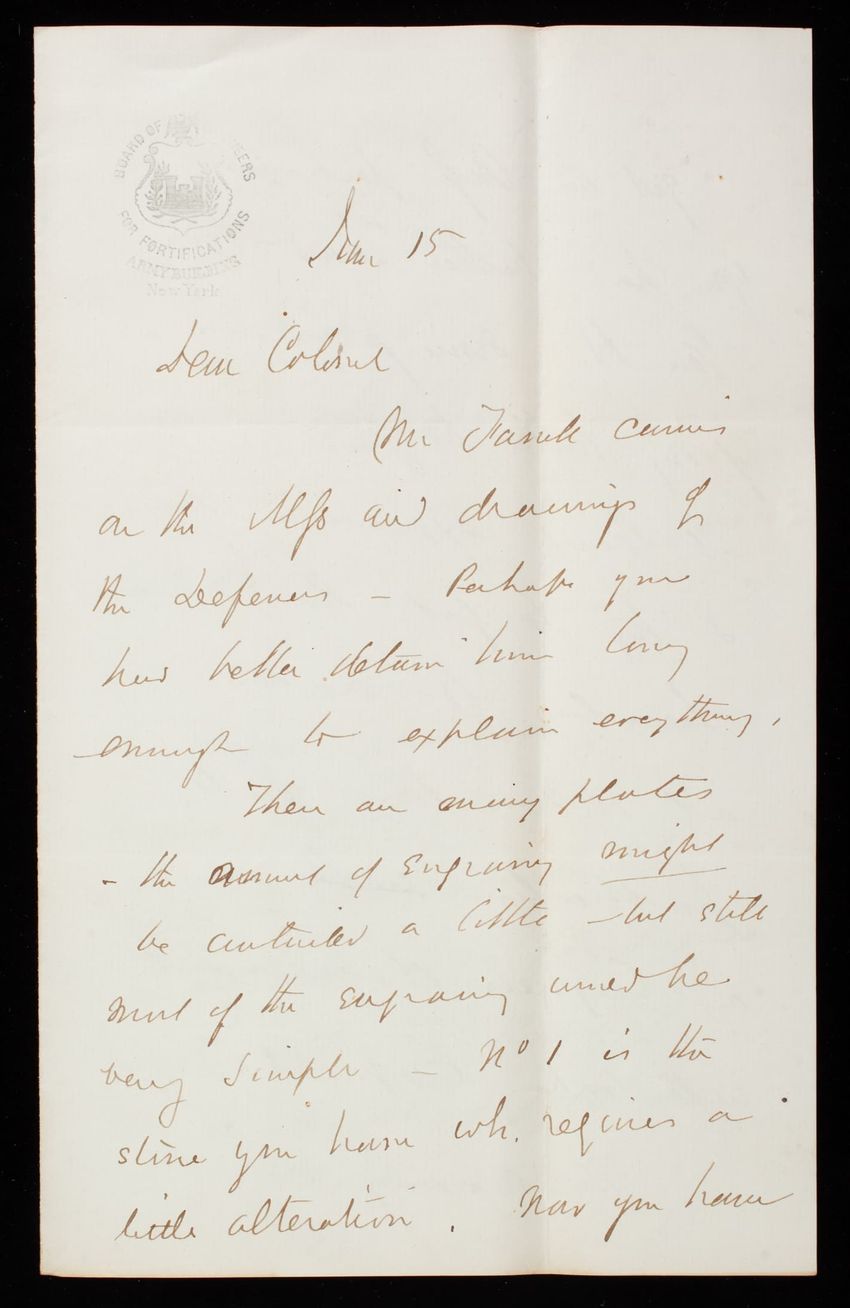 BOARD OF ENGINEERS
FOR FORTIFICATIONS
ARMY BUILDING
New York
15
Dear Colonel
Mr carries
on the Mss and drawings of
the Defences — Perhaps you
had better detain him long
enough to explain everything.
There are many plates
- the amount of engraving might
be curtailed a little — but still
most of the engraving would be
very simple — No 1 is the
stone you have wh. requires a
little alteration. Now you have